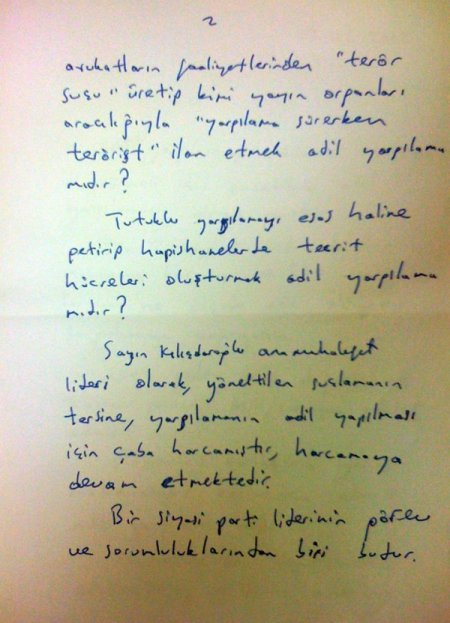 2
avukatların faaliyetlerinden "terör
suçu" üretip kimi yayın organları
aracılığıyla "yargılama sürerken
terörist" ilan etmek adil yargılama
mıdır?
Tutuklu yargılamayı esas haline
getirip hapishanelerde tecrit
hücreleri oluşturmak adil yargılama
mıdır?
Sayın Kılıçdaroğlu anamuhalefet
lideri olarak, yöneltilen suçlamanın
tersine, yargılamanın adil yapılması
için çaba harcamıştır, harcamaya
devam etmektedir.
Bir siyasi parti liderinin görev
ve sorumluluklarından biri budur.